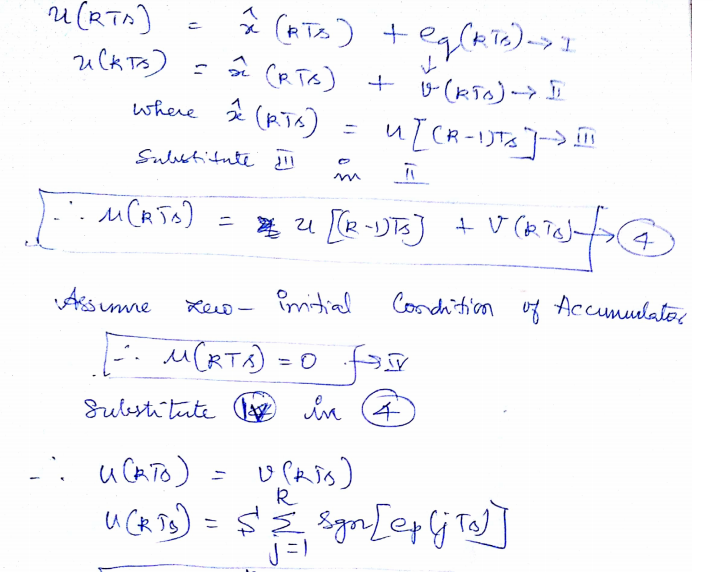 u(kTs) = x̂(kTs) + eq(kTs) → I
↓
u(kTs) = x̂(kTs) + v(kTs) → II
where x̂(kTs) = u[(k-1)Ts] → III
Substitute III in II
∴ u(kTs) = u[(k-1)Ts] + v(kTs) → 4
Assume zero-initial Condition of Accumulator
∴ u(kTs) = 0 → IV
Substitute IV in 4
∴ u(kTs) = v(kTs)
u(kTs) = S ∑_{j=1}^{k} sgn[ep(jTs)]